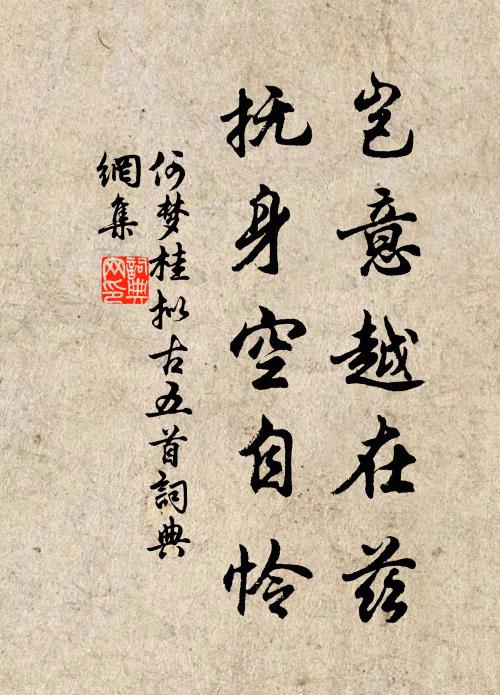 岂意越在兹
抚身空自怜
何梦桂拟古五首詞典
網集
詞典网印